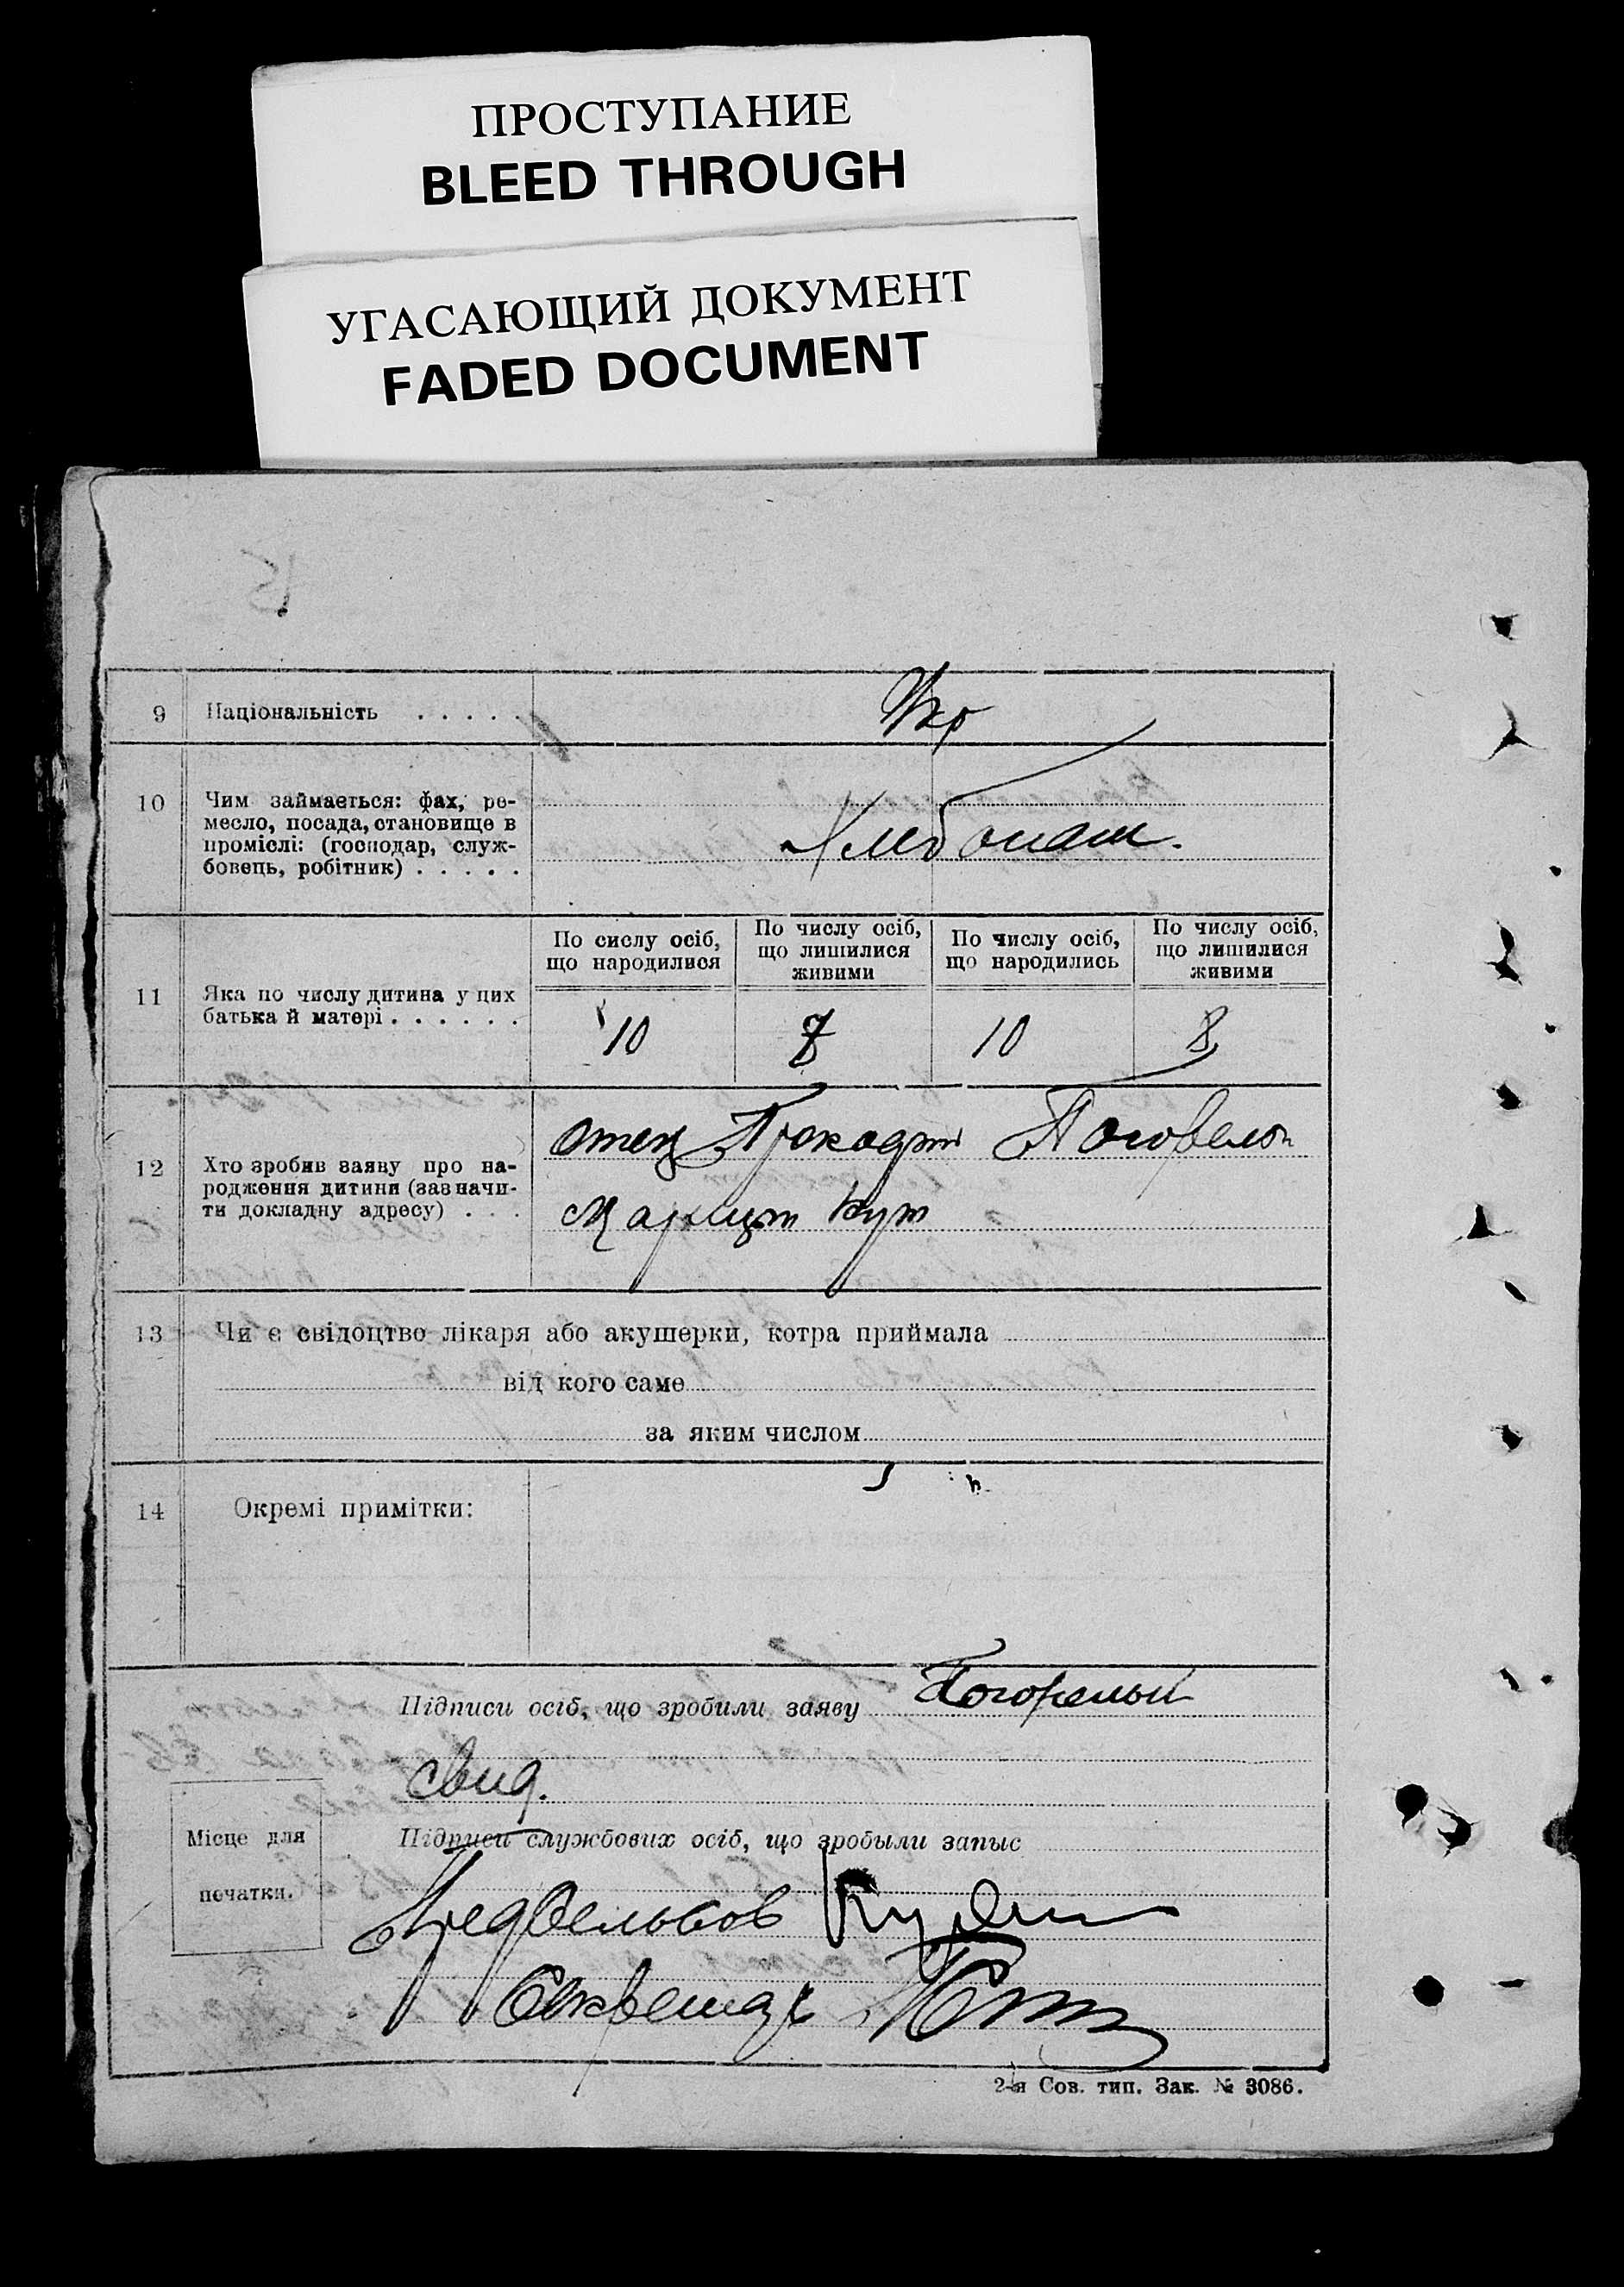 ПРОСТУПАНИЕ
BLEED THROUGH
УГАСАЮЩИЙ ДОКУМЕНТ
FADED DOCUMENT
9 Національність . . . . . Укр
10 Чим займається: фах, ре-
месло, посада, становище в
проміслі: (господар, служ-
бовець, робітник) . . . . .
Хлебопаш.
11 Яка по числу дитина у цих
батька й матері . . . . . .
По сислу осіб,
що народилися
По числу осіб,
що лишилися
живими
По числу осіб,
що народились
По числу осіб,
що лишилися
живими
10 10 8
12 Хто зробив заяву про на-
родження дитини (зазначи-
ти докладну адресу) . . .
отец
Кут
13 Чи є свідоцтво лікаря або акушерки, котра приймала
від кого саме
за яким числом
14 Окремі примітки:
Підписи осіб, що зробили заяву Погорелый
Свид.
Місце для
печатки.
Підписи службових осіб, що зробыли запыс
Предсельсов
Секретарь
2-я Сов. тип. Зак. № 3086.